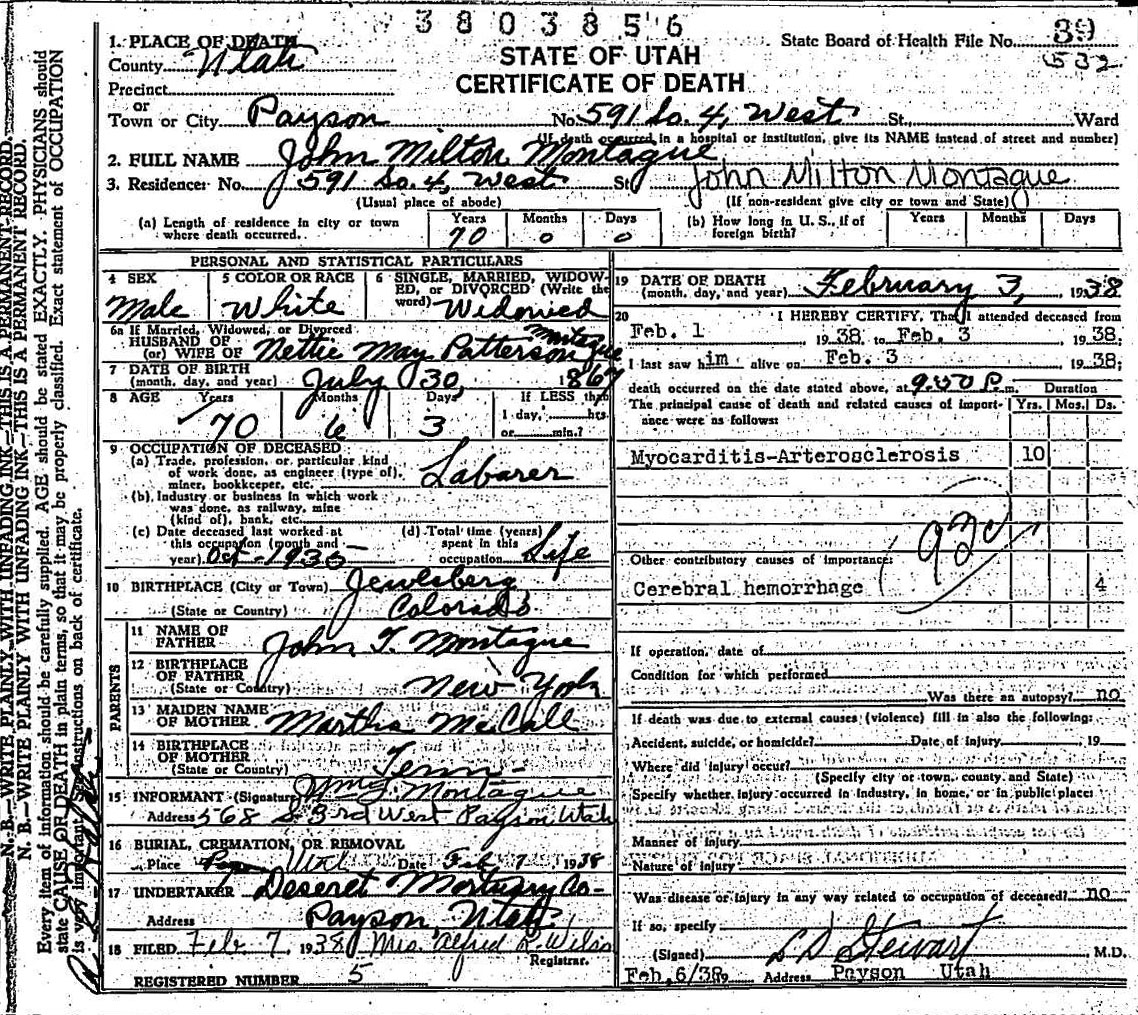 3803856
1. PLACE OF DEATH
County Utah
Precinct
or
Town or City Payson No. 591 So. 4, West St., Ward
(If death occurred in a hospital or institution, give its NAME instead of street and number)
STATE OF UTAH
CERTIFICATE OF DEATH
State Board of Health File No. 39
532
2. FULL NAME John Milton Montague
3. Residence: No. 591 So. 4, West St. John Milton Montague
(Usual place of abode) (If non-resident give city or town and State)
(a) Length of residence in city or town where death occurred. Years 70 Months 0 Days 0
(b) How long in U. S., if of foreign birth? Years Months Days
PERSONAL AND STATISTICAL PARTICULARS
4 SEX Male
5 COLOR OR RACE White
6 SINGLE, MARRIED, WIDOWED, OR DIVORCED (Write the word) Widowed
6a If Married, Widowed, or Divorced
HUSBAND OF
(or) WIFE OF Nettie May Patterson Montague
7 DATE OF BIRTH
(month, day, and year) July 30, 1867
8 AGE Years 70 Months 6 Days 3 If LESS than 1 day, hrs. or min.?
9 OCCUPATION OF DECEASED
(a) Trade, profession, or particular kind
of work done, as engineer (type of),
miner, bookkeeper, etc. Labarer
(b) Industry or business in which work
was done, as railway, mine
(kind of), bank, etc.
(c) Date deceased last worked at
this occupation (month and
year) Oct-1935
(d) Total time (years)
spent in this
occupation Life
10 BIRTHPLACE (City or Town) Jewlsberg
(State or Country) Colorado
PARENTS
11 NAME OF
FATHER John T. Montague
12 BIRTHPLACE
OF FATHER
(State or Country) New York
13 MAIDEN NAME
OF MOTHER Martha McCall
14 BIRTHPLACE
OF MOTHER
(State or Country) Tenn-
15 INFORMANT (Signature) Montague
Address 568 S. 3rd West Payson Utah
16 BURIAL, CREMATION, OR REMOVAL
Place Utah Date Feb 7 1938
17 UNDERTAKER Deseret Mortuary Co-
Address Payson Utah
18 FILED Feb 7 1938 Mrs. Alfred L. Wilson
Registrar.
REGISTERED NUMBER 5
19 DATE OF DEATH
(month, day, and year) February 3, 1938
20 I HEREBY CERTIFY, That I attended deceased from
Feb. 1 1938, to Feb. 3 1938;
I last saw him alive on Feb. 3 1938;
death occurred on the date stated above, at 9:00 P. m. Duration
The principal cause of death and related causes of importance were as follows: Yrs. Mos. Ds.
Myocarditis-Arterosclerosis 10
Other contributory causes of importance:
Cerebral hemorrhage 4
If operation, date of
Condition for which performed
Was there an autopsy? no
If death was due to external causes (violence) fill in also the following:
Accident, suicide, or homicide? Date of injury 19
Where did injury occur?
(Specify city or town, county and State)
Specify whether injury occurred in industry, in home, or in public place:
Manner of injury
Nature of injury
Was disease or injury in any way related to occupation of deceased? no
If so, specify
(Signed) L D Stewart, M.D.
Feb. 6/38 Address Payson Utah
N. B.—WRITE PLAINLY WITH UNFADING INK—THIS IS A PERMANENT RECORD.
N. B.—WRITE PLAINLY WITH UNFADING INK—THIS IS A PERMANENT RECORD.
Every item of information should be carefully supplied. AGE should be stated EXACTLY. PHYSICIANS should
state CAUSE OF DEATH in plain terms, so that it may be properly classified. Exact statement of OCCUPATION
is very important. See instructions on back of certificate.